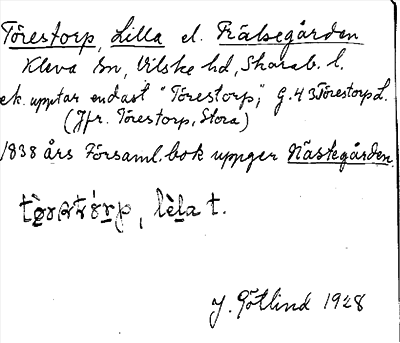 Törestorp, Lilla el. Frälsegården
Kleva sn, Vilske hd, Skarab. l.
ek. upptar endast "Törestorp", g. 43 Törestorp L.
(Jfr. Törestorp, Stora)
1838 års Församl. bok uppger Nästegården.
lèla t.
J. Götlind 1928